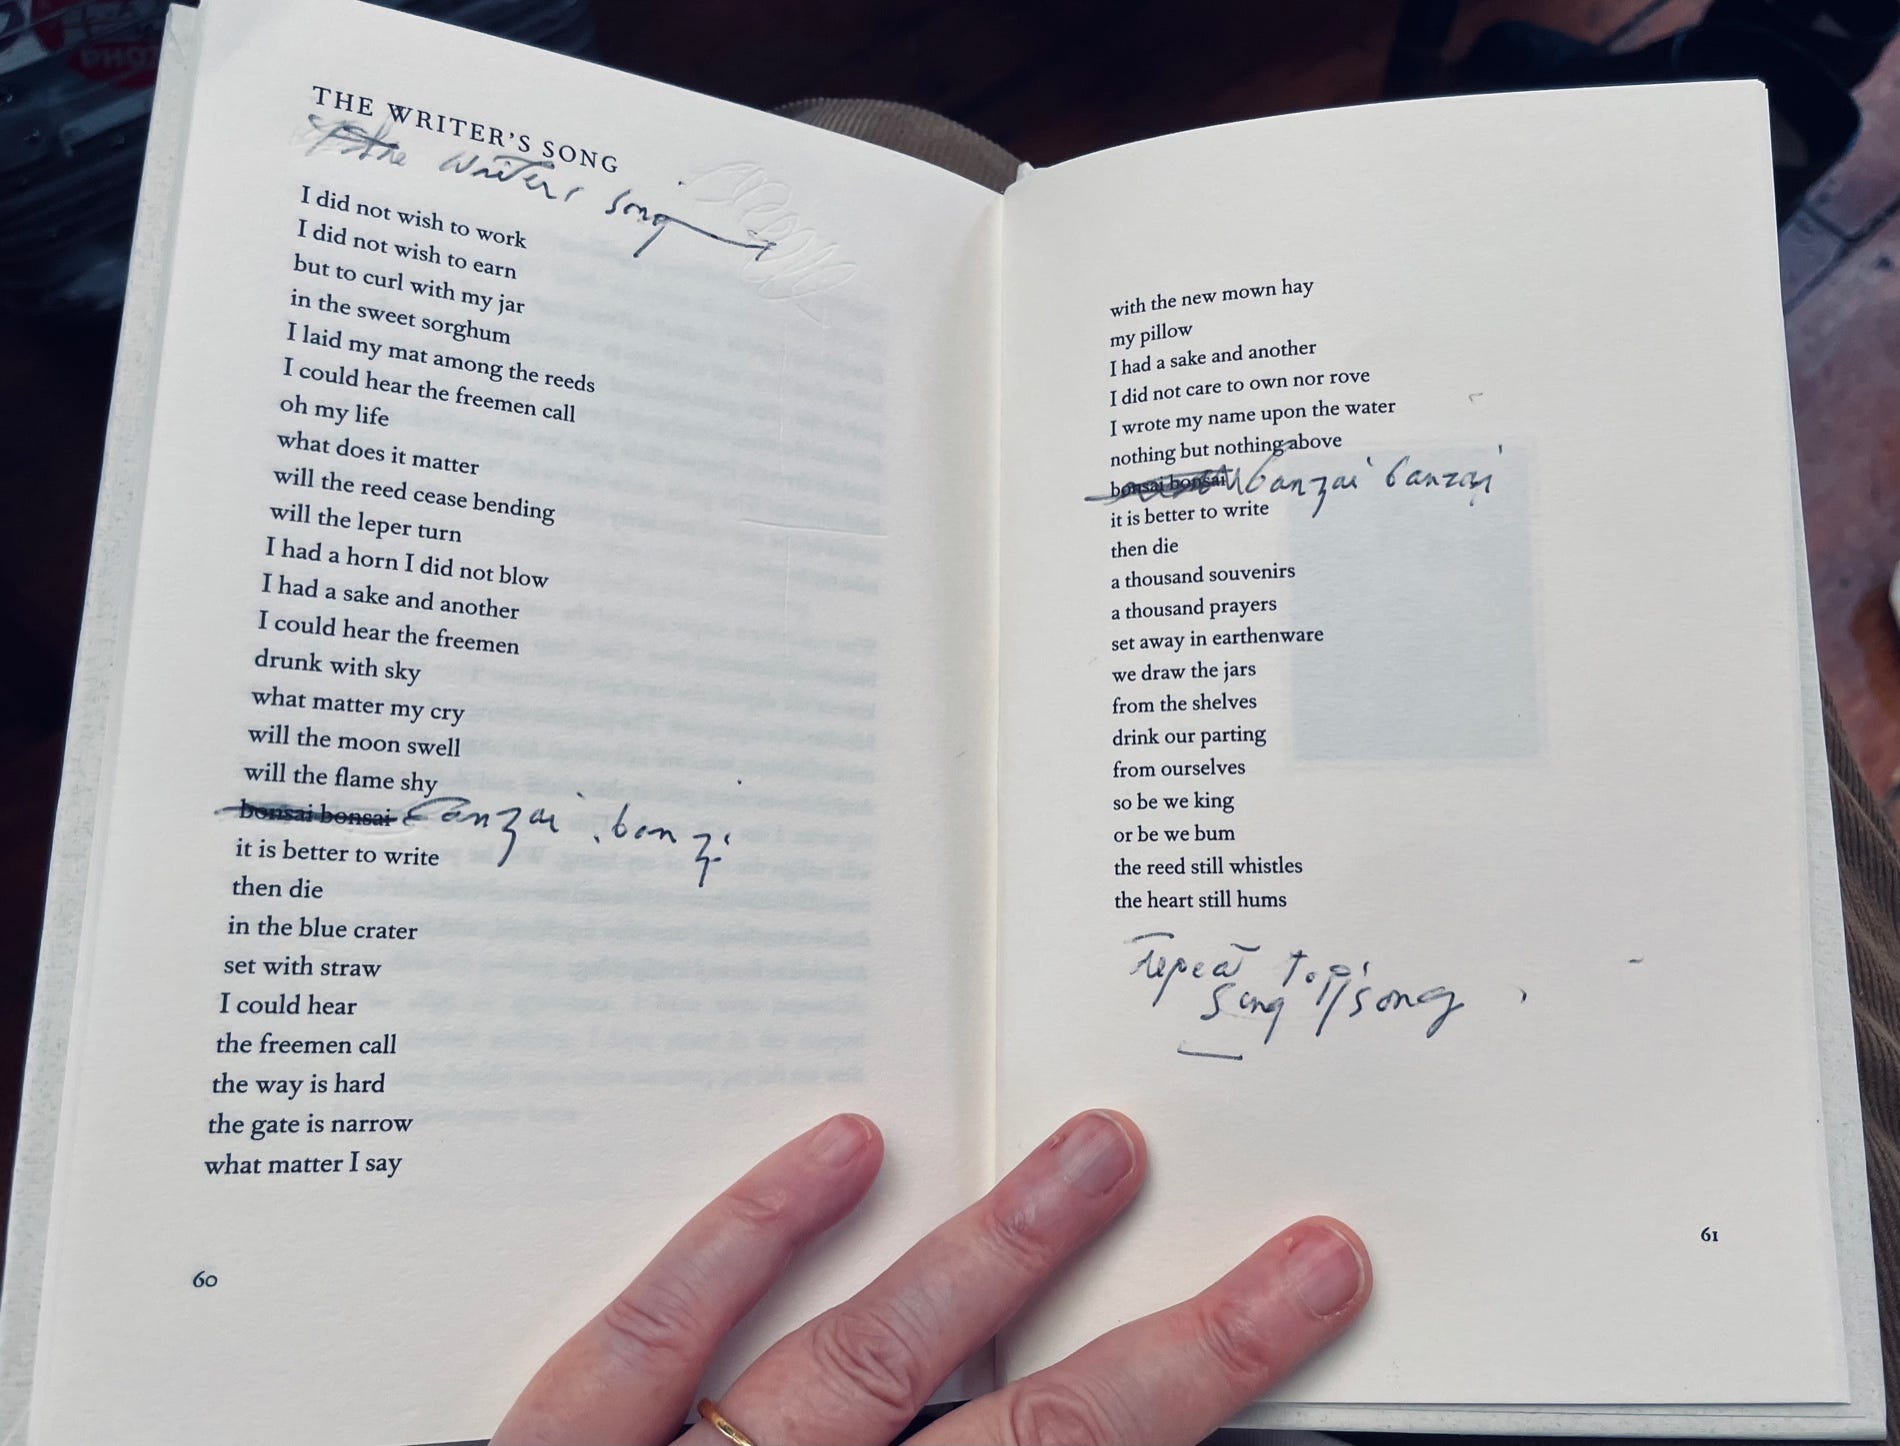 THE WRITER'S SONG
the Writers Song
I did not wish to work
I did not wish to earn
but to curl with my jar
in the sweet sorghum
I laid my mat among the reeds
I could hear the freemen call
oh my life
what does it matter
will the reed cease bending
will the leper turn
I had a horn I did not blow
I had a sake and another
I could hear the freemen
drunk with sky
what matter my cry
will the moon swell
will the flame shy
bonsai bonsai banzai banzi
it is better to write
then die
in the blue crater
set with straw
I could hear
the freemen call
the way is hard
the gate is narrow
what matter I say
60
with the new mown hay
my pillow
I had a sake and another
I did not care to own nor rove
I wrote my name upon the water
nothing but nothing above
bonsai bonsai banzai banzai
it is better to write
then die
a thousand souvenirs
a thousand prayers
set away in earthenware
we draw the jars
from the shelves
drink our parting
from ourselves
so be we king
or be we bum
the reed still whistles
the heart still hums
repeat top
song
61